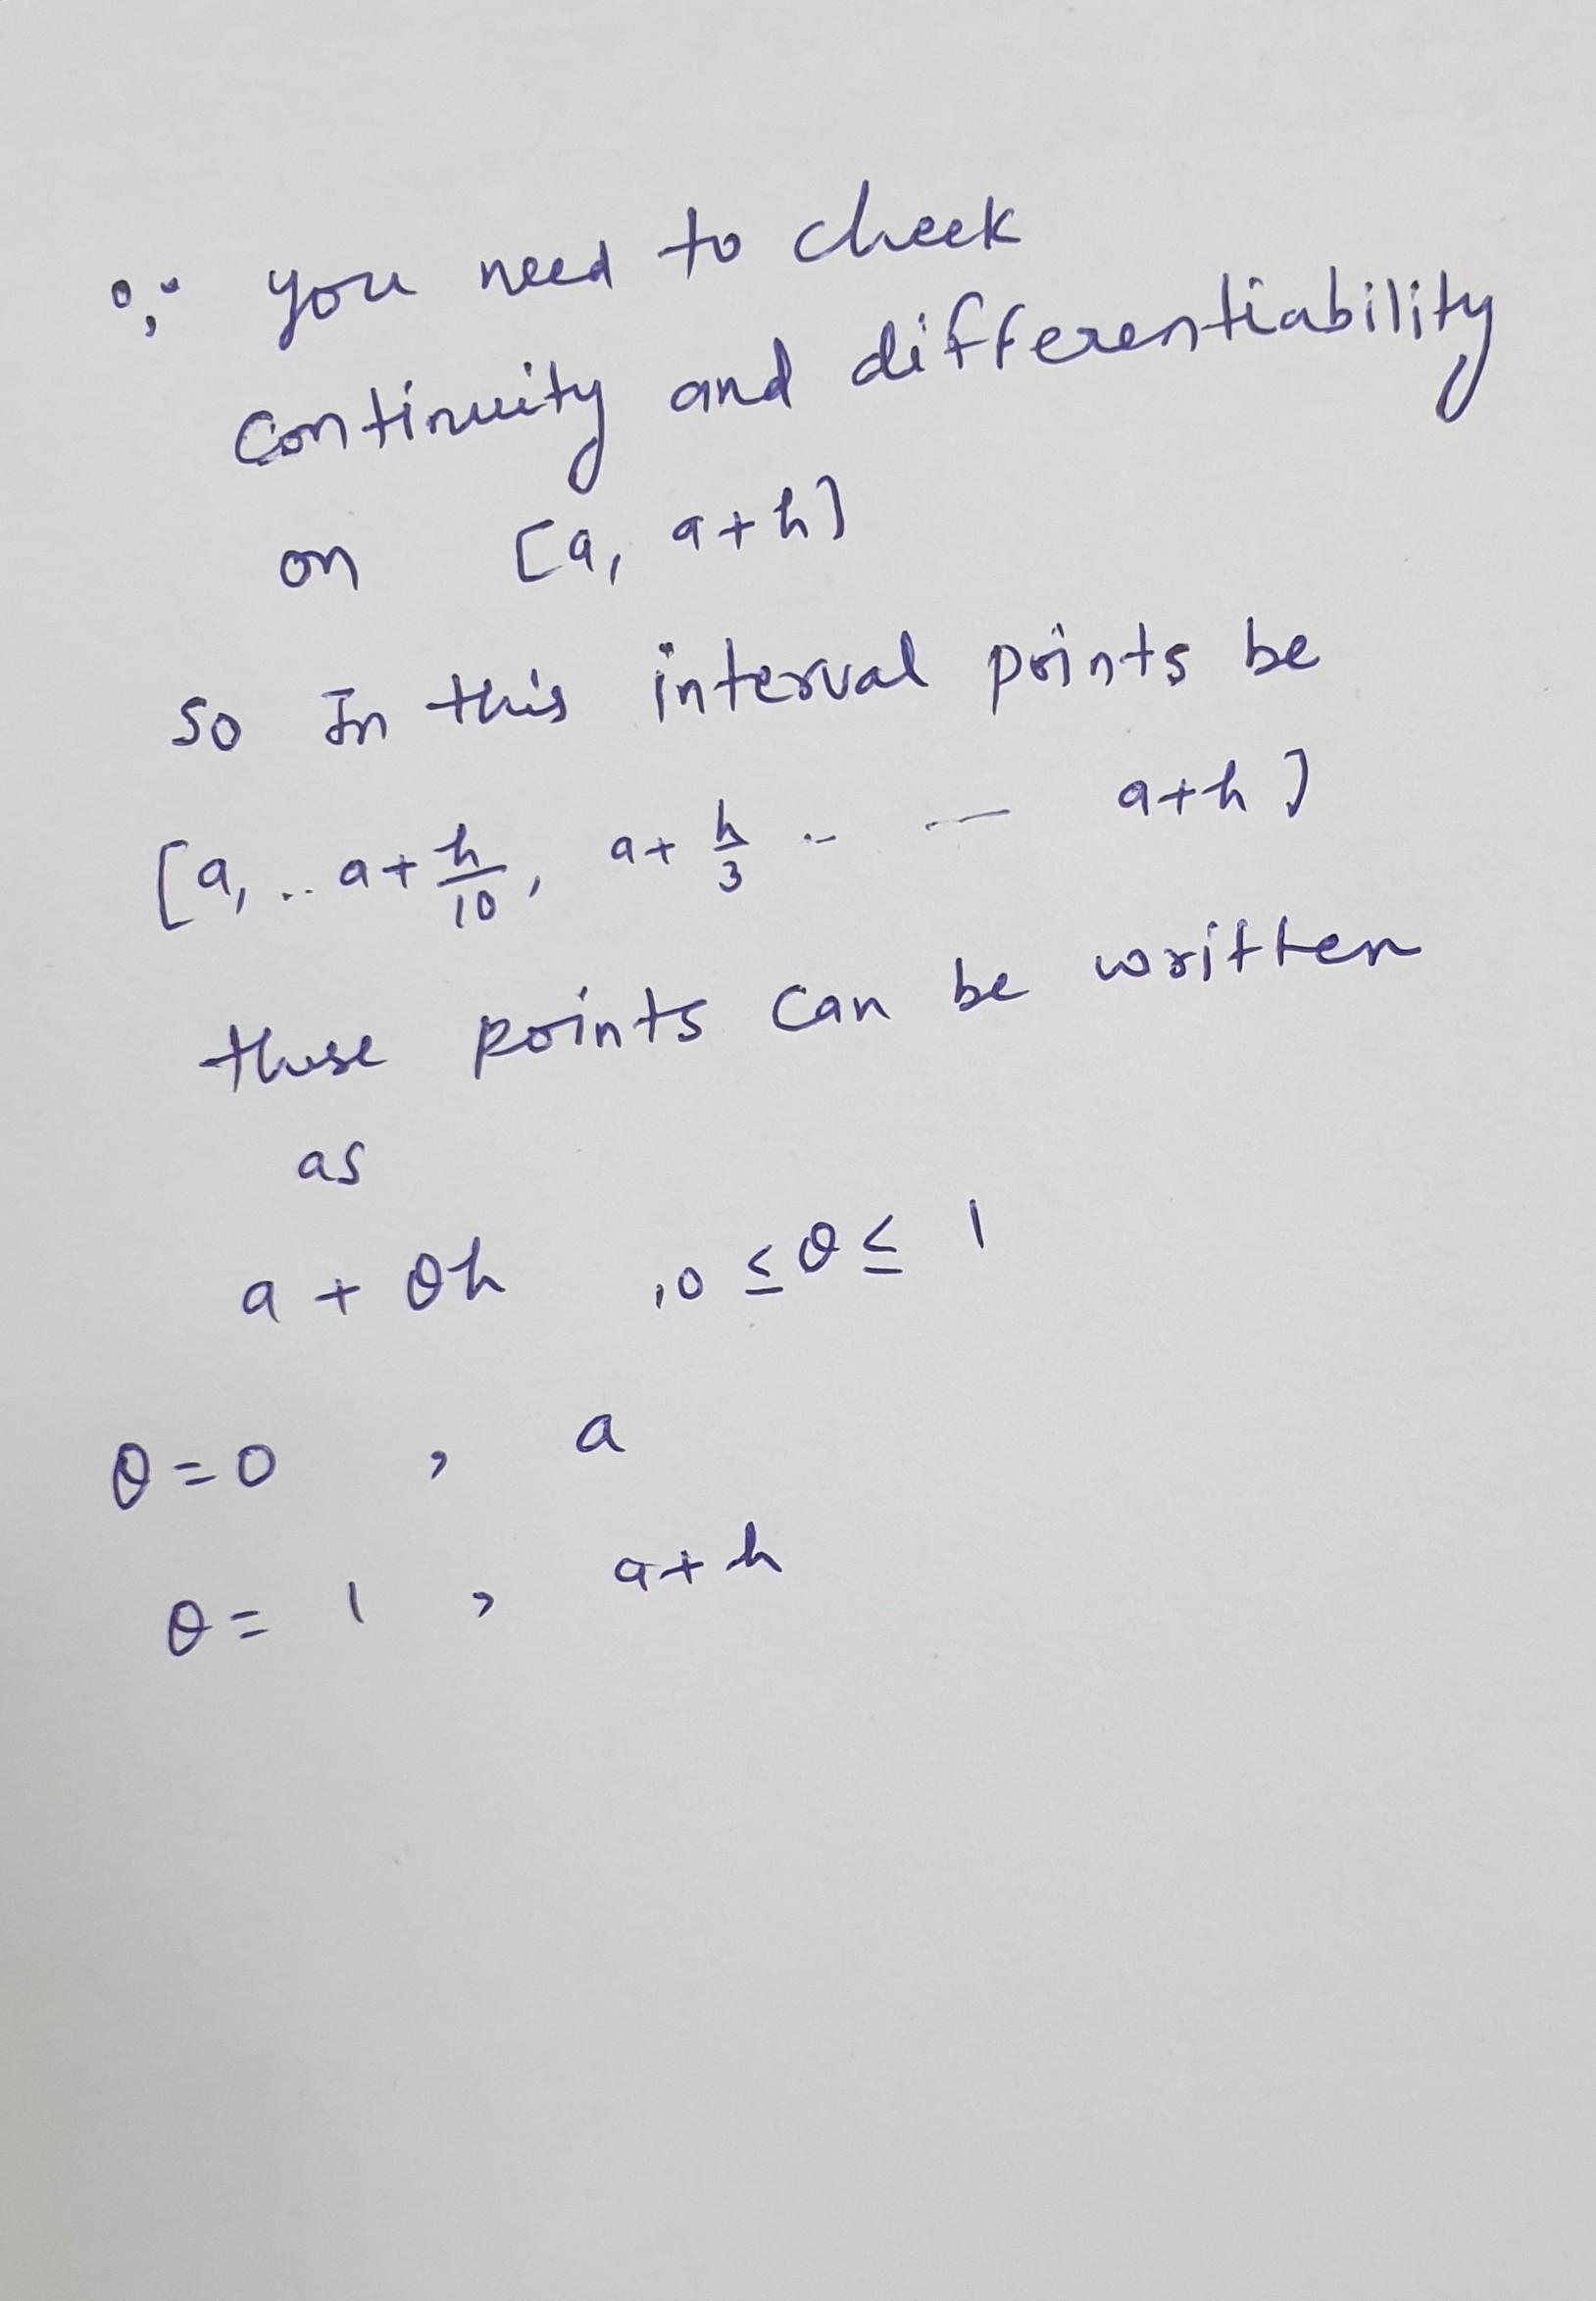 ∵ you need to check
continuity and differentiability
on [a, a+h]
so In this interval points be
[a, .. a+h/10, a+h/3 .. — a+h]
these points can be written
as
a + θh , 0 ≤ θ ≤ 1
θ=0 , a
θ= 1 , a+h